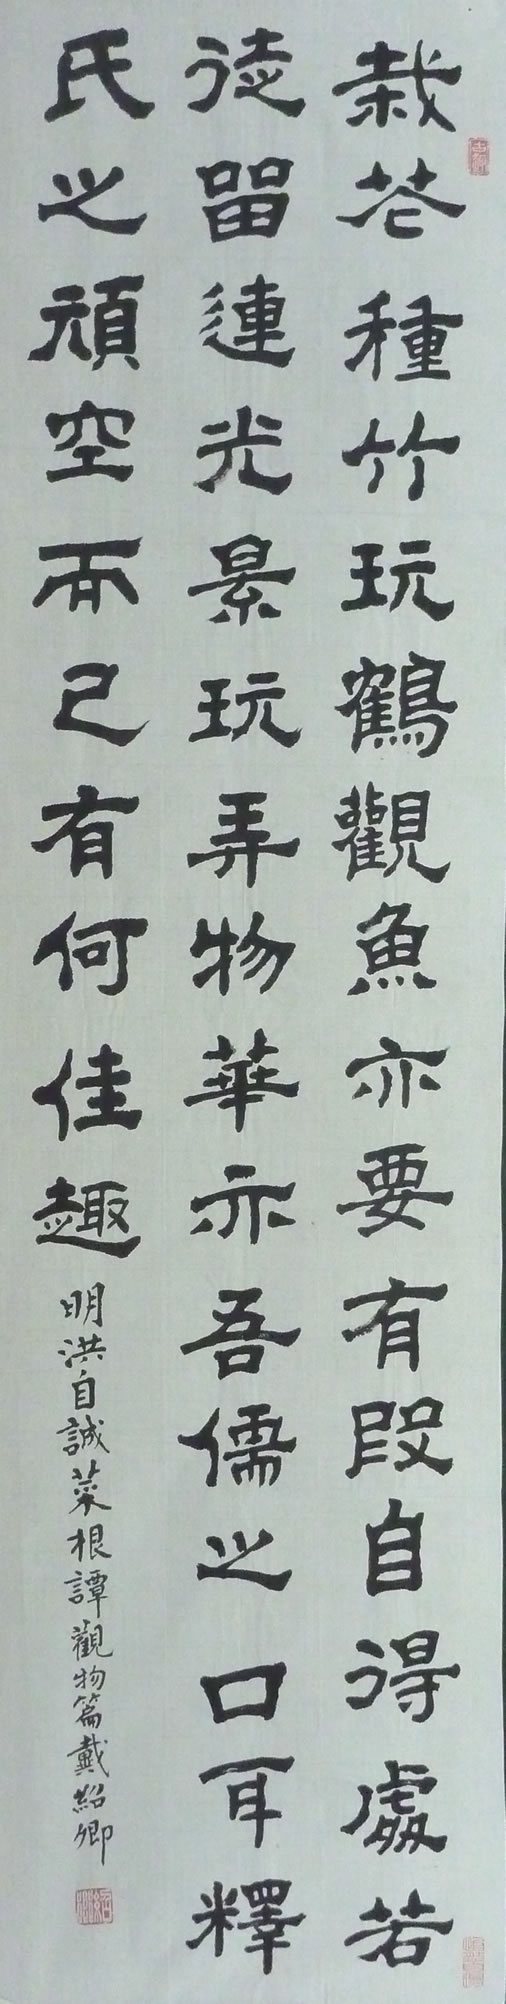 栽花種竹玩鶴觀魚亦要有段自得處若
徒留連光景玩弄物華亦吾儒之口耳釋
氏之頑空而已有何佳趣
明洪自誠菜根譚觀物篇戴紹卿